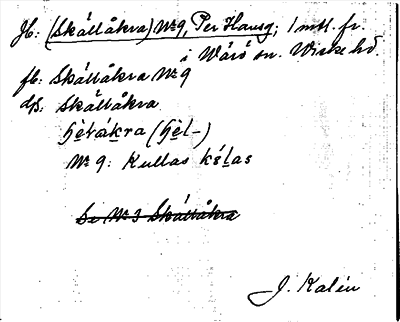 Jb: (Skällåkra) Nr 9, Per Hansg; 1 mtl. fr.
i Värö sn. Viske hd
fb: Skällåkra Nr 9
ds. Skällåkra
(hèl-)
Nr 9: Kullas
Se Nr 3 Skällåkra
J. Kalén